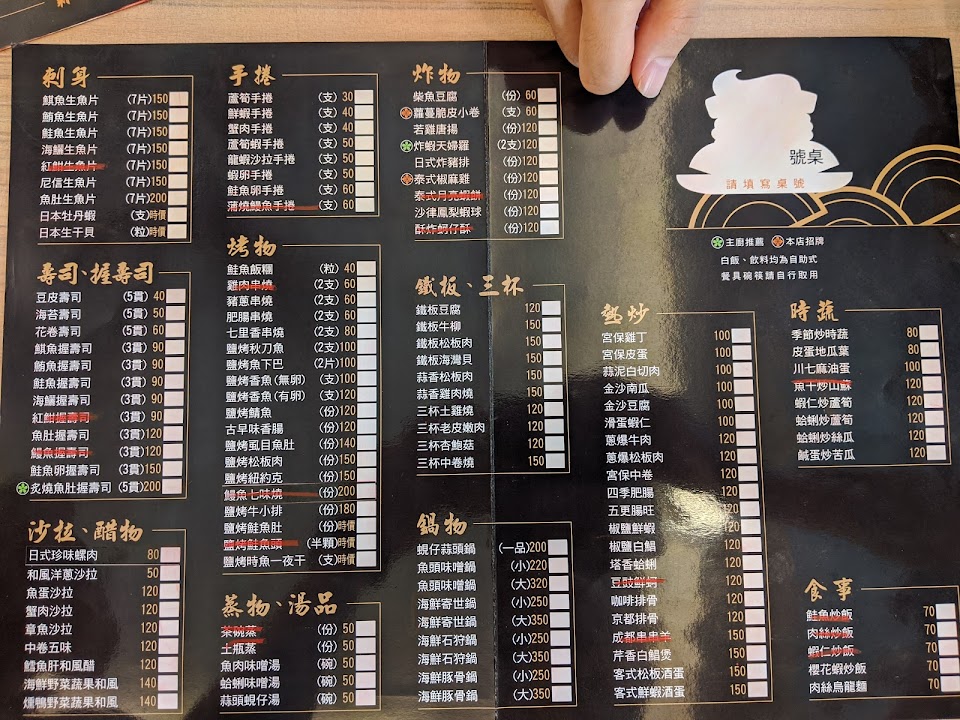 刺身
魽魚生魚片 (7片)150
鮪魚生魚片 (7片)150
鮭魚生魚片 (7片)150
海鱺生魚片 (7片)150
紅魽生魚片 (7片)150
尼信生魚片 (7片)150
魚肚生魚片 (7片)200
日本牡丹蝦 (支)時價
日本生干貝 (粒)時價
壽司、握壽司
豆皮壽司 (5貫) 40
海苔壽司 (5貫) 50
花卷壽司 (5貫) 60
魽魚握壽司 (3貫) 90
鮪魚握壽司 (3貫) 90
鮭魚握壽司 (3貫) 90
海鱺握壽司 (3貫) 90
紅魽握壽司 (3貫) 90
魚肚握壽司 (3貫)120
鰻魚握壽司 (3貫)120
鮭魚卵握壽司 (3貫)150
炙燒魚肚握壽司 (5貫)200
沙拉、醋物
日式珍味螺肉 80
和風洋蔥沙拉 50
魚蛋沙拉 120
蟹肉沙拉 120
章魚沙拉 120
中卷五味 120
鱈魚肝和風醋 120
海鮮野菜蔬果和風 140
燻鴨野菜蔬果和風 140
手捲
蘆筍手捲 (支) 30
鮮蝦手捲 (支) 40
蟹肉手捲 (支) 40
蘆筍蝦手捲 (支) 50
龍蝦沙拉手捲 (支) 50
蝦卵手捲 (支) 50
鮭魚卵手捲 (支) 60
蒲燒鰻魚手捲 (支) 60
烤物
鮭魚飯糰 (粒) 40
雞肉串燒 (2支) 60
豬蔥串燒 (2支) 60
肥腸串燒 (2支) 60
七里香串燒 (2支) 80
鹽烤秋刀魚 (2支)100
鹽烤魚下巴 (2片)100
鹽烤香魚(無卵) (支)100
鹽烤香魚(有卵) (支)120
鹽烤鯖魚 (份)120
古早味香腸 (份)120
鹽烤虱目魚肚 (份)140
鹽烤松板肉 (份)150
鹽烤紐約克 (份)150
鰻魚七味燒 (份)200
鹽烤牛小排 (份)180
鹽烤鮭魚肚 (份)時價
鹽烤鮭魚頭 (半顆)時價
鹽烤時魚一夜干 (支)時價
蒸物、湯品
茶碗蒸 (份) 50
土瓶蒸 (份) 50
魚肉味噌湯 (碗) 50
蛤蜊味噌湯 (碗) 50
蒜頭蜆仔湯 (碗) 50
炸物
柴魚豆腐 (份) 60
蘿蔓脆皮小卷 (支) 60
若雞唐揚 (份)120
炸蝦天婦羅 (2支)120
日式炸豬排 (份)120
泰式椒麻雞 (份)120
泰式月亮蝦餅 (份)120
沙律鳳梨蝦球 (份)120
酥炸蚵仔酥 (份)120
鐵板、三杯
鐵板豆腐 120
鐵板牛柳 150
鐵板松板肉 150
鐵板海灣貝 150
蒜香松板肉 150
蒜香雞肉燒 150
三杯土雞燒 120
三杯老皮嫩肉 120
三杯杏鮑菇 120
三杯中卷燒 150
鍋物
蜆仔蒜頭鍋 (一品)200
魚頭味噌鍋 (小)220
魚頭味噌鍋 (大)320
海鮮寄世鍋 (小)250
海鮮寄世鍋 (大)350
海鮮石狩鍋 (小)250
海鮮石狩鍋 (大)350
海鮮豚骨鍋 (小)250
海鮮豚骨鍋 (大)350
號桌
請填寫桌號
主廚推薦 本店招牌
白飯、飲料均為自助式
餐具碗筷請自行取用
熱炒
宮保雞丁 100
宮保皮蛋 100
蒜泥白切肉 100
金沙南瓜 100
金沙豆腐 100
滑蛋蝦仁 100
蔥爆牛肉 120
蔥爆松板肉 120
宮保中卷 120
四季肥腸 120
五更腸旺 120
椒鹽鮮蝦 120
椒鹽白鯧 120
塔香蛤蜊 120
豆豉鮮蚵 120
咖啡排骨 120
京都排骨 120
成都串串羊 150
芹香白鯧煲 150
客式松板酒蛋 150
客式鮮蝦酒蛋 150
時蔬
季節炒時蔬 80
皮蛋地瓜葉 80
川七麻油蛋 100
魚干炒山蘇 120
蝦仁炒蘆筍 120
蛤蜊炒蘆筍 120
蛤蜊炒絲瓜 120
鹹蛋炒苦瓜 120
食事
鮭魚炒飯 70
肉絲炒飯 70
蝦仁炒飯 70
櫻花蝦炒飯 70
肉絲烏龍麵 70